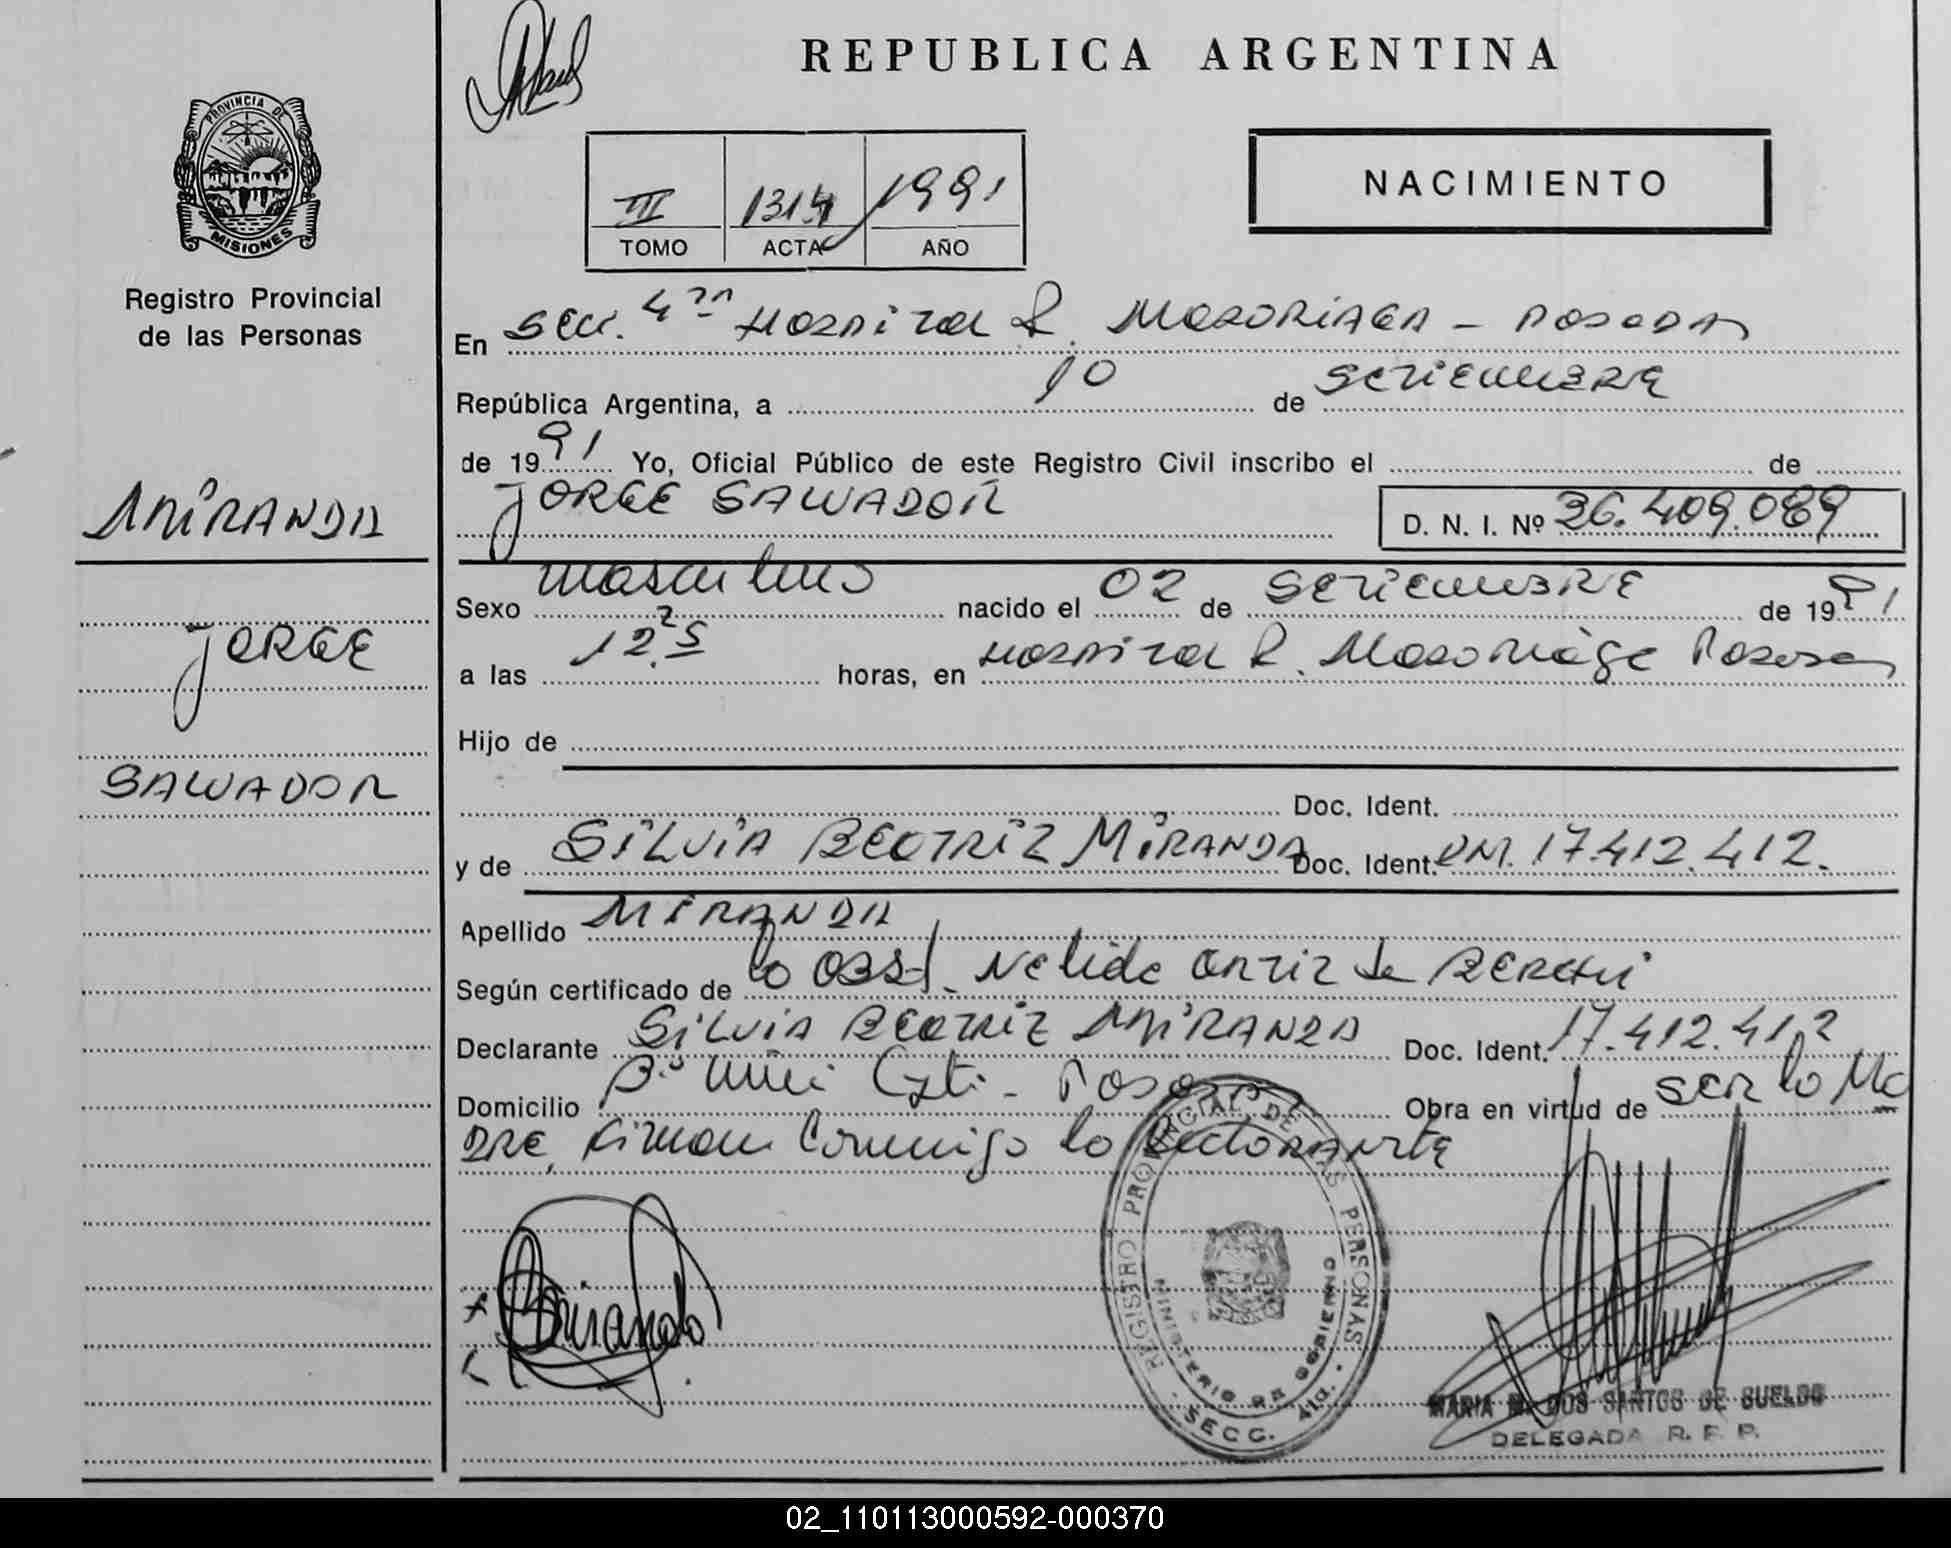 REPUBLICA ARGENTINA
PROVINCIA DE
MISIONES
Registro Provincial
de las Personas
III 1314 1991
TOMO ACTA AÑO
NACIMIENTO
MIRANDA
JORGE
SALVADOR
En Secc. 4ta Hospital R. Madariaga - Posadas
República Argentina, a 10 de SETIEMBRE
de 1991 Yo, Oficial Público de este Registro Civil inscribo el de
JORGE SALVADOR
D. N. I. Nº 36.409.089
Sexo masculino nacido el 02 de SETIEMBRE de 1991
a las 12.25 horas, en Hospital R. Madariaga Posadas
Hijo de
Doc. Ident.
y de SILVIA BEATRIZ MIRANDA Doc. Ident. DNI. 17.412.412.
Apellido MIRANDA
Según certificado de la Obst. Nelida Ortiz de
Declarante SILVIA BEATRIZ MIRANDA Doc. Ident. 17.412.412
Domicilio Bº Posadas Obra en virtud de ser la Ma
dre, Firman Conmigo la Declarante
Miranda
REGISTRO PROVINCIAL DE LAS PERSONAS
MINISTERIO DE GOBIERNO
SECC. 4ta.
MARIA DOS SANTOS DE SUELDO
DELEGADA R. P. P.
02_110113000592-000370